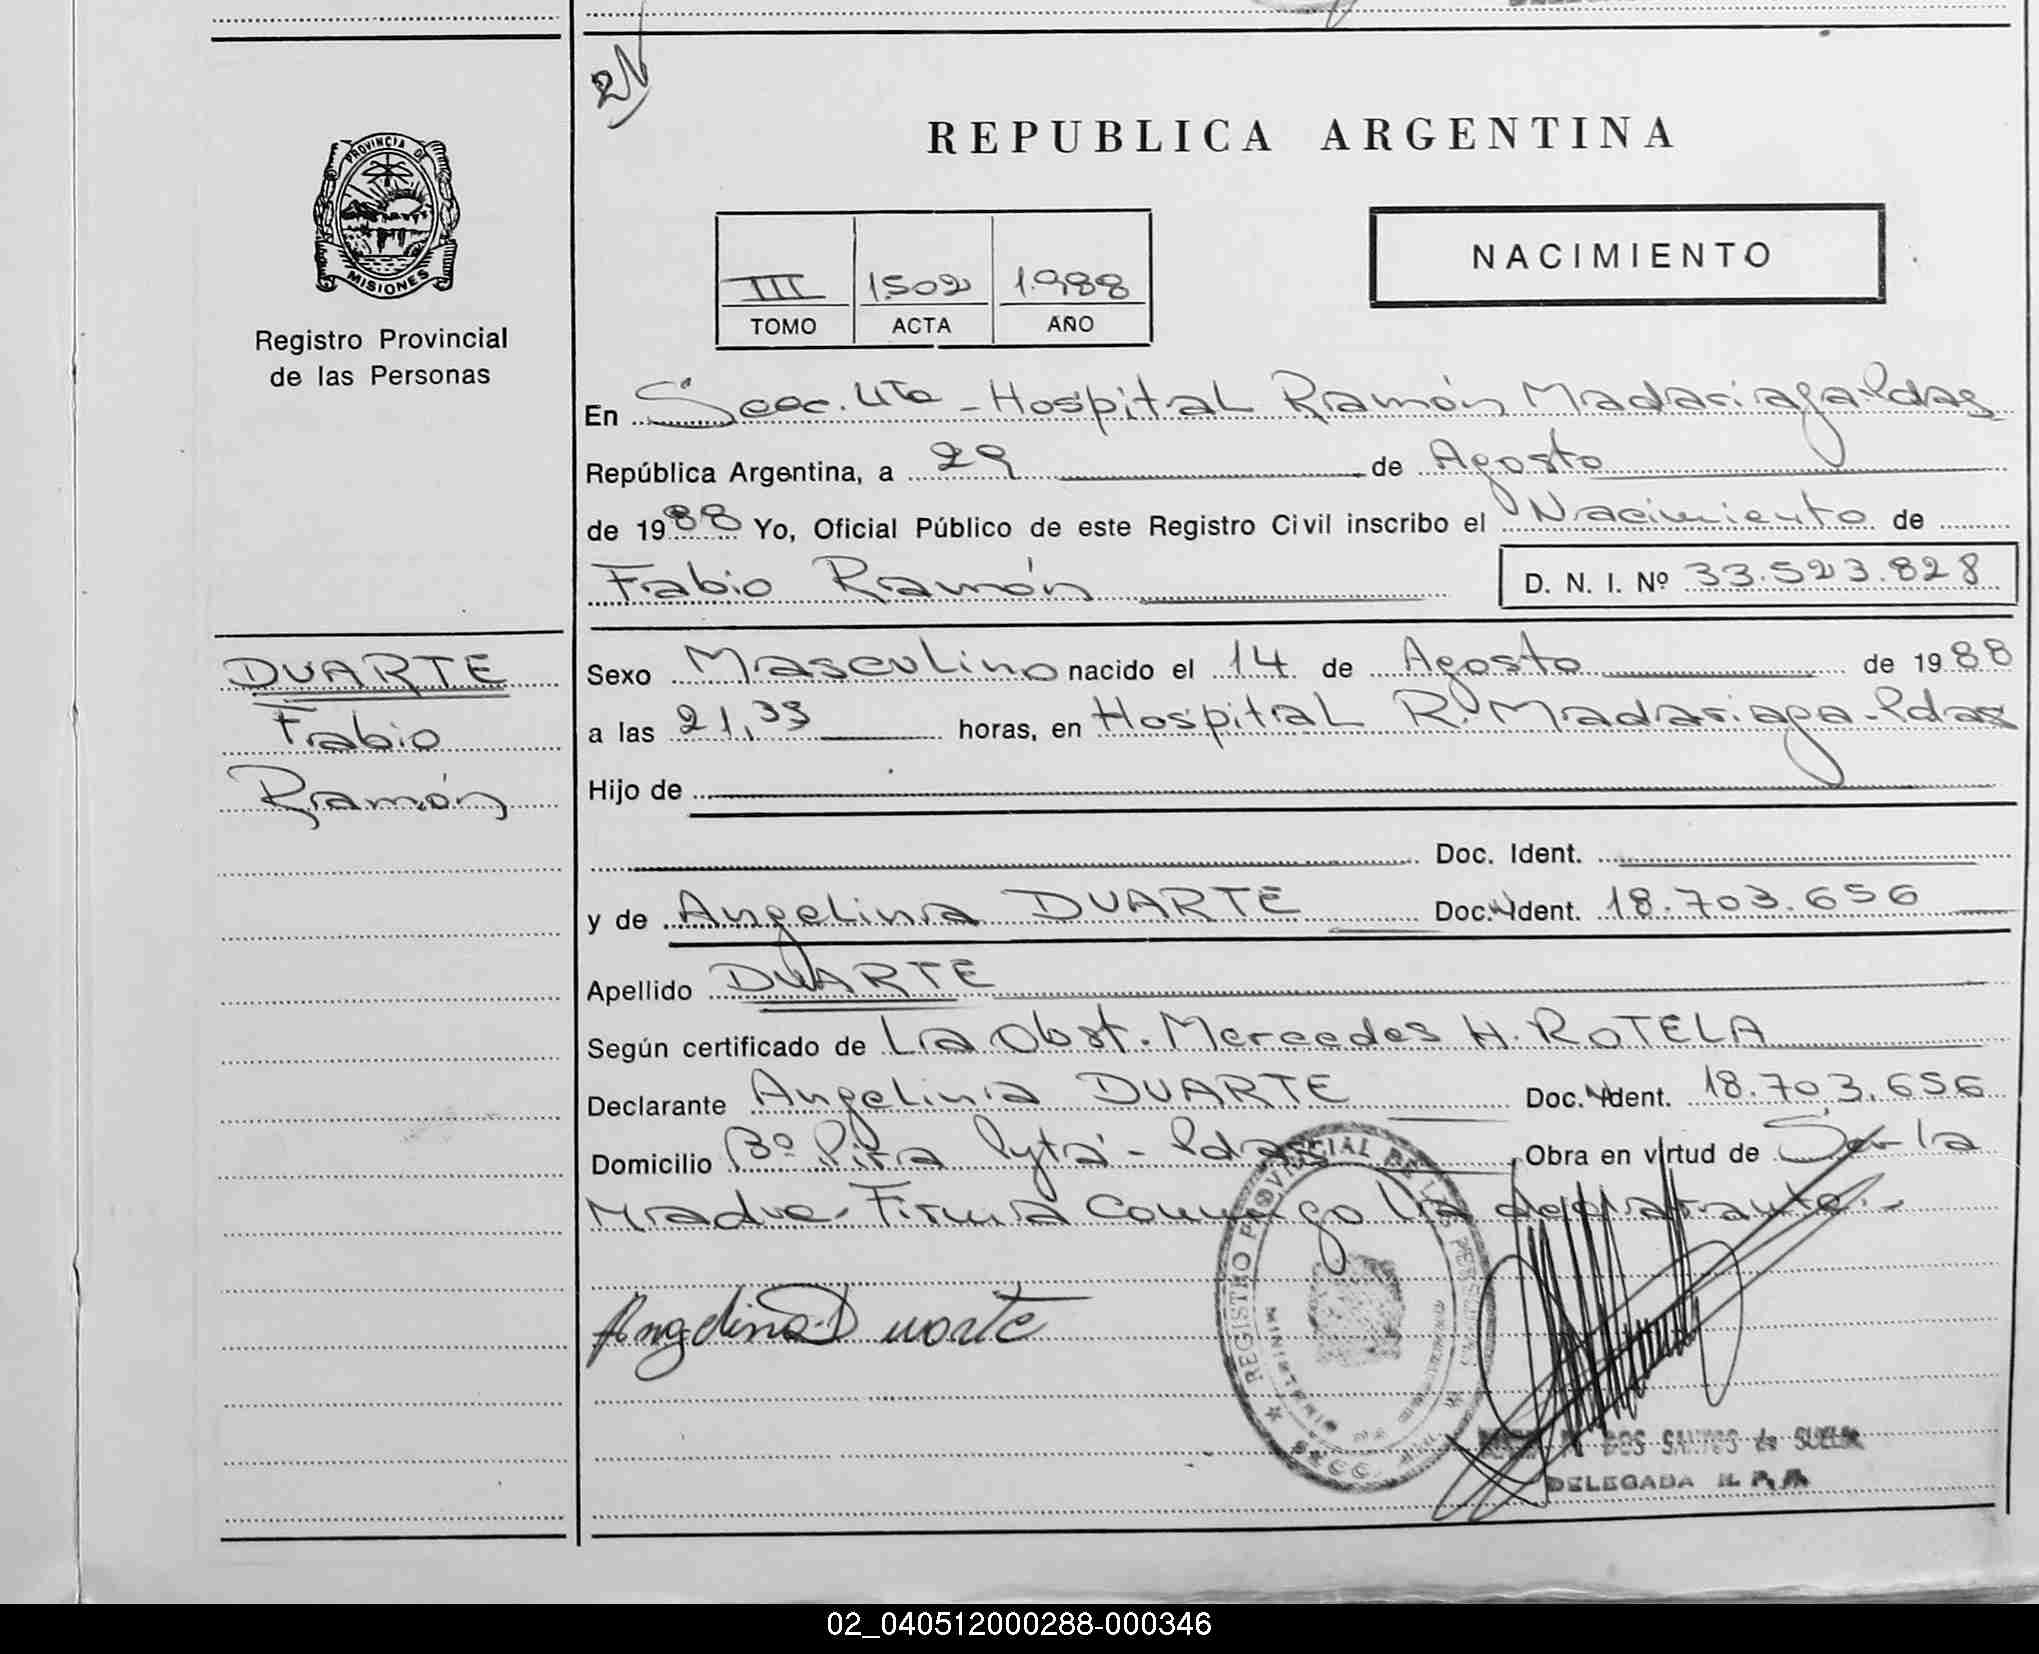 2N
PROVINCIA DE
MISIONES
Registro Provincial
de las Personas
REPUBLICA ARGENTINA
NACIMIENTO
III 1502 1.988
TOMO ACTA AÑO
En Secc. 4ta - Hospital Ramón Madariaga-Pdas
República Argentina, a 29 de Agosto
de 1988 Yo, Oficial Público de este Registro Civil inscribo el Nacimiento de
Fabio Ramón D. N. I. Nº 33.523.828
DUARTE
Fabio
Ramón
Sexo Masculino nacido el 14 de Agosto de 1988
a las 21,33 horas, en Hospital R. Madariaga-Pdas
Hijo de
Doc. Ident.
y de Angelina DUARTE Doc. Ident. 18.703.656
Apellido DUARTE
Según certificado de La Obst. Mercedes H. ROTELA
Declarante Angelina DUARTE Doc. Ident. 18.703.656
Domicilio Bº Pira Pytá - Pdas Obra en virtud de Ser la
Madre - Firma Conmigo la declarante.-
Angelina Duarte
REGISTRO PROVINCIAL DE LAS PERSONAS
DOS SANTOS de
DELEGADA R. P. P.
02_040512000288-000346